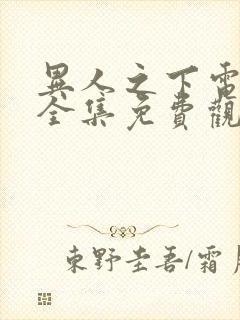 異人之下電
全集免費觀
東野圭吾/霜月